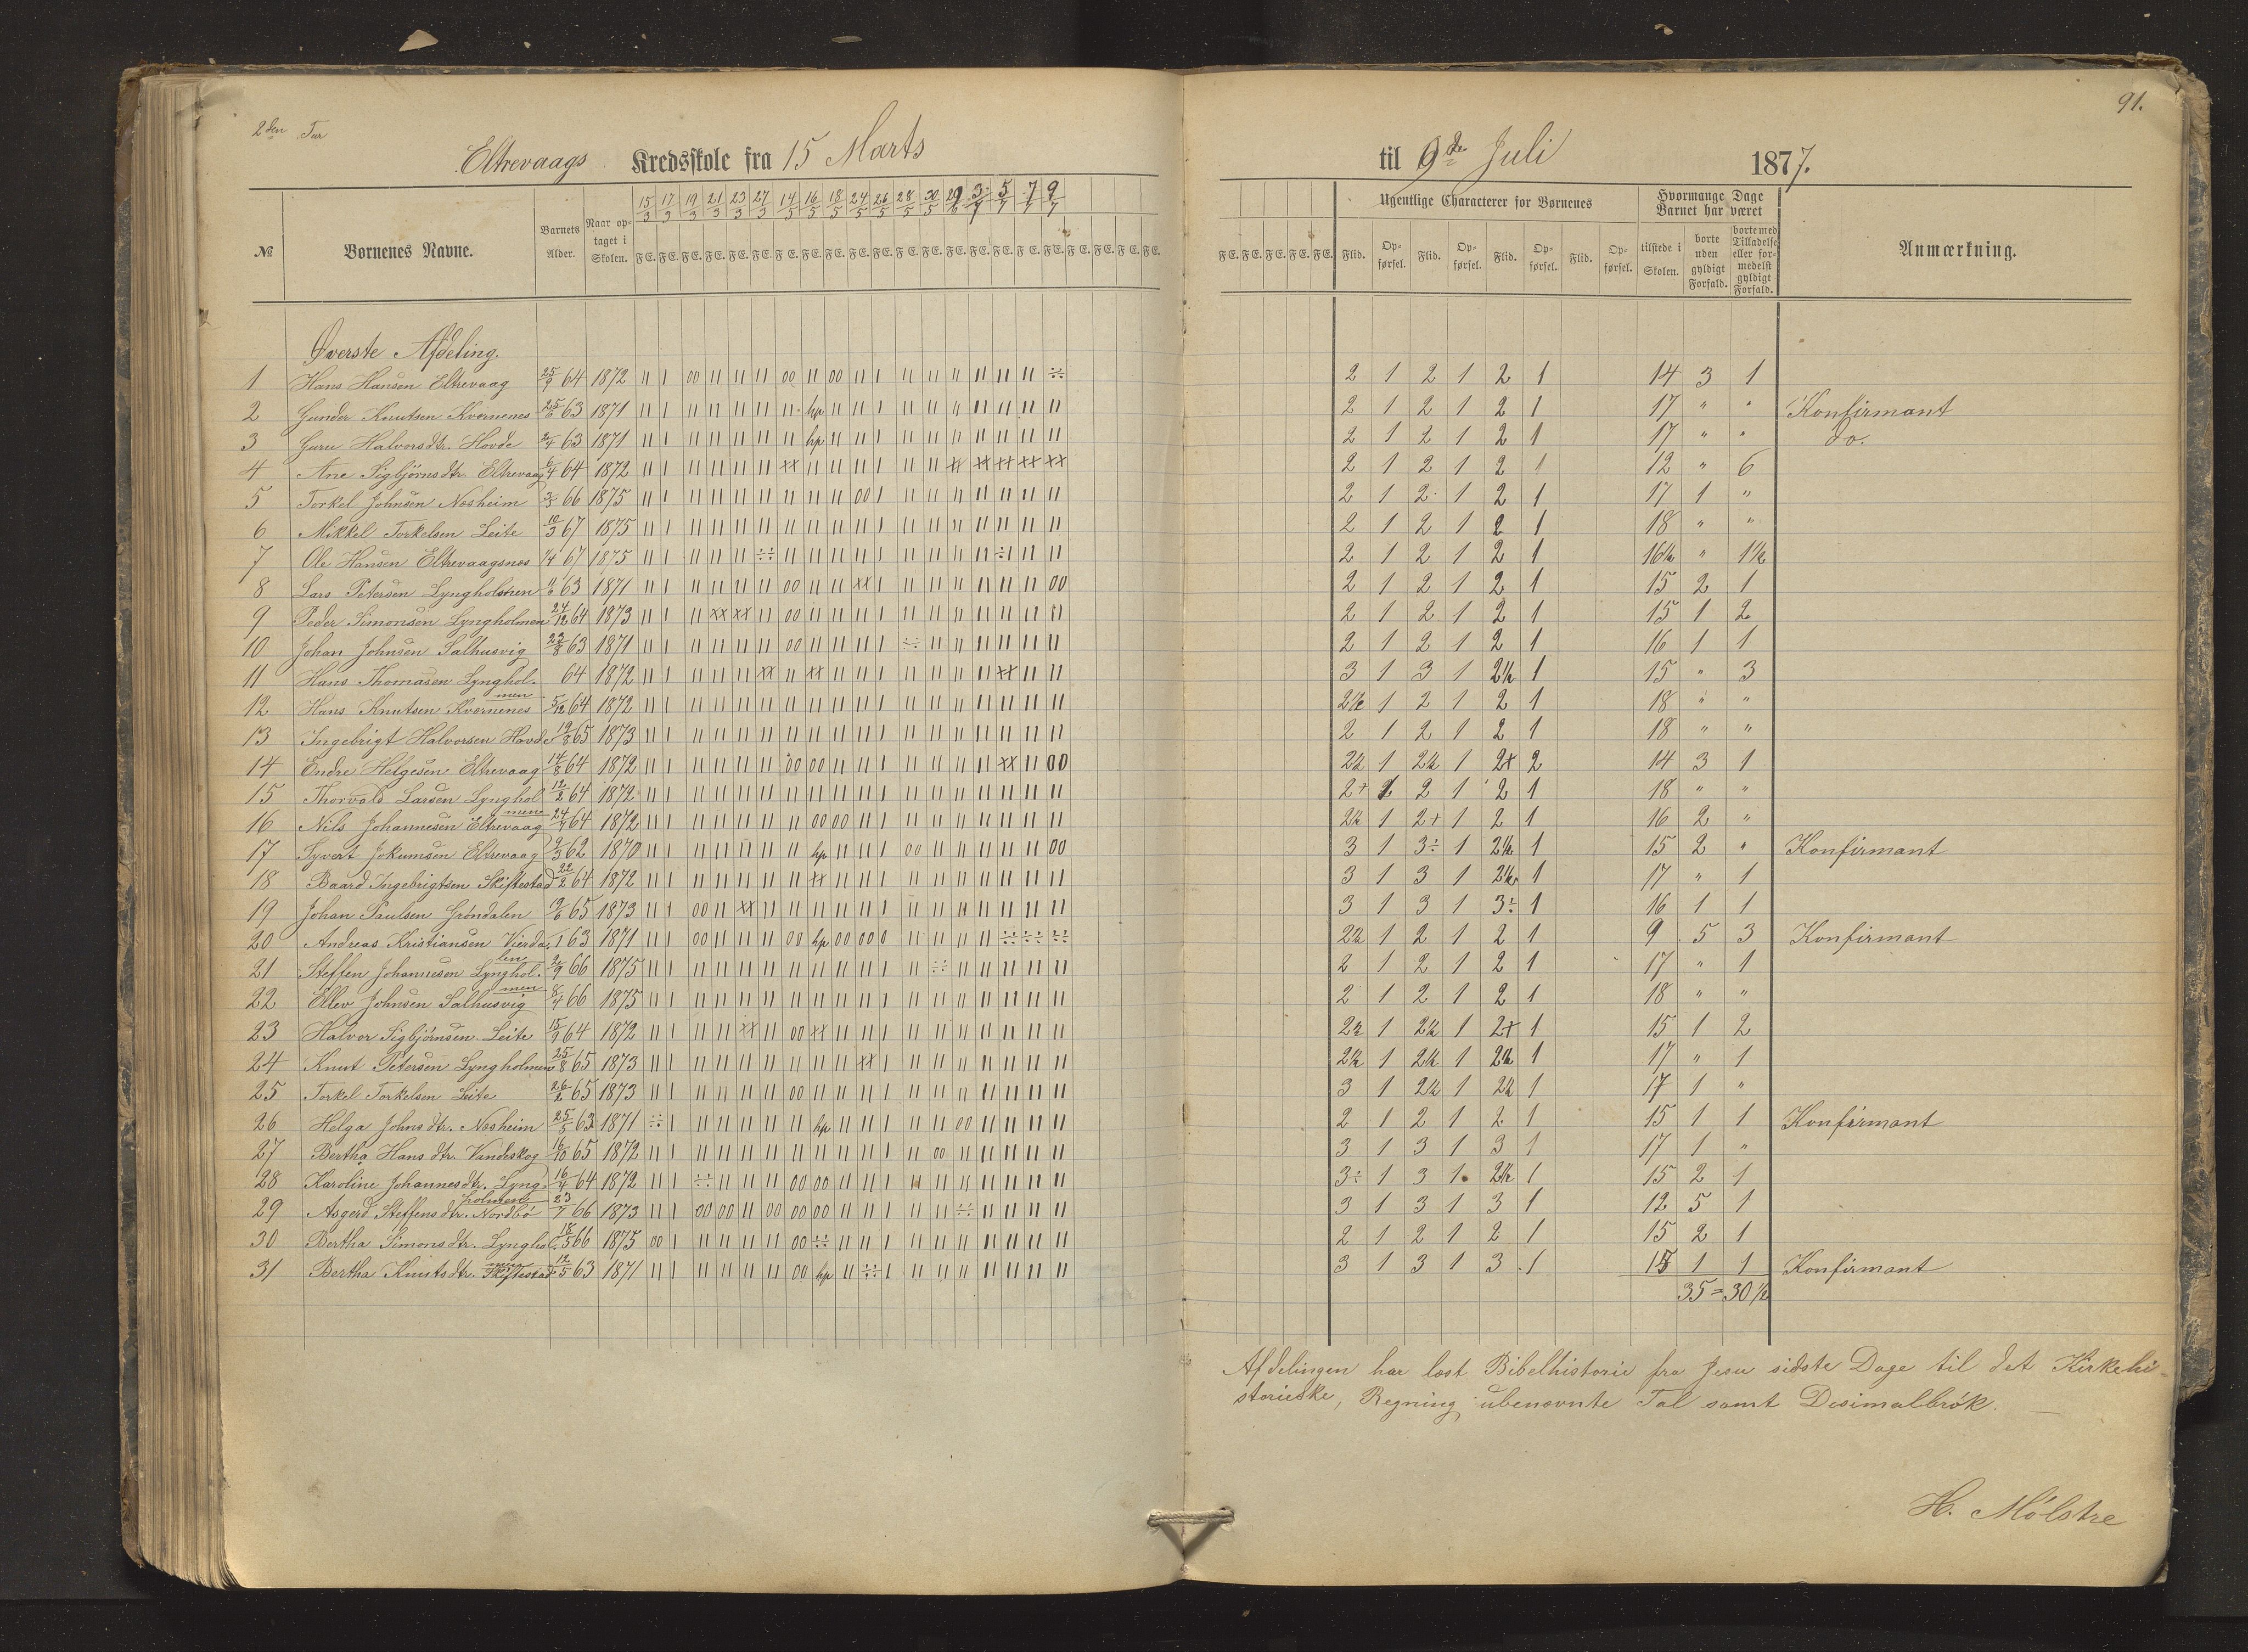 2den Tur
91.
Eltrevaags Kredsskole fra 15 Marts til 9de Juli 1877.
15/3 17/3 19/3 21/3 23/3 27/3 14/5 16/5 18/5 24/5 26/5 28/5 30/5 3/7 5/7 7/7 9/7
№ Børnenes Navne. Barnets Alder. Naar optaget i Skolen. F E. F E. F E. F E. F E. F E. F E. F E. F E. F E. F E. F E. F E. F E. F E. F E. F E. F E. F E. F E. F E. F E.
F E. F E. F E. F E. F E. Ugentlige Characterer for Børnenes Flid. Opførsel. Flid. Opførsel. Flid. Opførsel. Flid. Opførsel. Hvormange Dage Barnet har været tilstede i Skolen. borte uden gyldigt Forfald. borte med Tilladelse eller formedelst gyldigt Forfald. Anmærkning.
Øverste Afdeling.
1 Hans Hansen Eltrevaag 25/9 64 1872 2 1 2 1 2 1 14 3 1
2 Gunder Knutsen Kvernenes 25/6 63 1871 2 1 2 1 2 1 17 " " Konfirmant
3 Guru Halvorsdtr. Hovde 2/4 63 1871 2 1 2 1 2 1 17 " " do.
4 Ane Sigbjørnsdtr. Eltrevaag 6/4 64 1872 2 1 2 1 2 1 12 " 6
5 Torkel Johnsen Nesheim 2/3 66 1875 2 1 2 1 2 1 17 1 "
6 Mikkel Torkelsen Leite 10/3 67 1875 2 1 2 1 2 1 18 " "
7 Ole Hansen Eltrevaagsnes 1/4 67 1875 2 1 2 1 2 1 16½ " 1½
8 Lars Petersen Lyngholmen 11/6 63 1871 2 1 2 1 2 1 15 2 1
9 Peder Simonsen Lyngholmen 24/12 64 1873 2 1 2 1 2 1 15 1 2
10 Johan Johnsen Salhusvig 22/8 63 1871 2 1 2 1 2 1 16 1 1
11 Hans Thomasen Lyngholmen 64 1872 3 1 3 1 2½ 1 15 " 3
12 Hans Knutsen Kvernenes 5/12 64 1872 2½ 1 2 1 2 1 18 " "
13 Ingebrigt Halvorsen Hovde 19/8 65 1873 2 1 2 1 2 1 18 " "
14 Endre Helgesen Eltrevaag 14/8 64 1872 2½ 1 2½ 1 2+ 2 14 3 1
15 Thorvald Larsen Lyngholmen 12/2 64 1872 2+ 1 2 1 2 1 18 " "
16 Nils Johannesen Eltrevaag 24/4 64 1872 2½ 1 2+ 1 2 1 16 2 "
17 Syvert Jokumsen Eltrevaag 9/3 62 1870 3 1 3÷ 1 2½ 1 15 2 " Konfirmant
18 Baard Ingebrigtsen Skiftestad 22/2 64 1872 3 1 3 1 2½ 1 17 " 1
19 Johan Paulsen Grøndalen 19/6 65 1873 3 1 3 1 3÷ 1 16 1 1
20 Andreas Kristiansen Vierdalen 63 1871 2½ 1 2 1 2 1 9 5 3 Konfirmant
21 Steffen Johannesen Lyngholmen 2/9 66 1875 2 1 2 1 2 1 17 " 1
22 Ellev Johnsen Salhusvig 8/4 66 1875 2 1 2 1 2 1 18 " "
23 Halvor Sigbjørnsen Leite 15/9 64 1872 2½ 1 2½ 1 2+ 1 15 1 2
24 Knut Petersen Lyngholmen 25/8 65 1873 2½ 1 2½ 1 2½ 1 17 " 1
25 Torkel Torkelsen Leite 26/2 65 1873 3 1 2½ 1 2½ 1 17 1 "
26 Helga Johnsdtr. Nesheim 25/5 63 1871 2 1 2 1 2 1 15 1 1 Konfirmant
27 Bertha Hansdtr. Vandeskog 16/10 65 1872 3 1 3 1 3 1 17 1 "
28 Karoline Johannesdtr. Lyngholmen 16/4 64 1872 3÷ 1 3 1 2½ 1 15 2 1
29 Asgerd Steffensdtr. Nordbø 23/7 66 1873 3 1 3 1 3 1 12 5 1
30 Bertha Simonsdtr. Lyngholmen 18/5 66 1875 2 1 2 1 2 1 15 2 1
31 Bertha Knutsdtr. Skiftestad 12/5 63 1871 3 1 3 1 3 1 15 1 1 Konfirmant
35 = 30½
Afdelingen har læst Bibelhistorie fra Jesu sidste Dage til det Kirkehi-
storieske, Regning ubenævnte Tal samt Desimalbrøk.
H. Mølstre